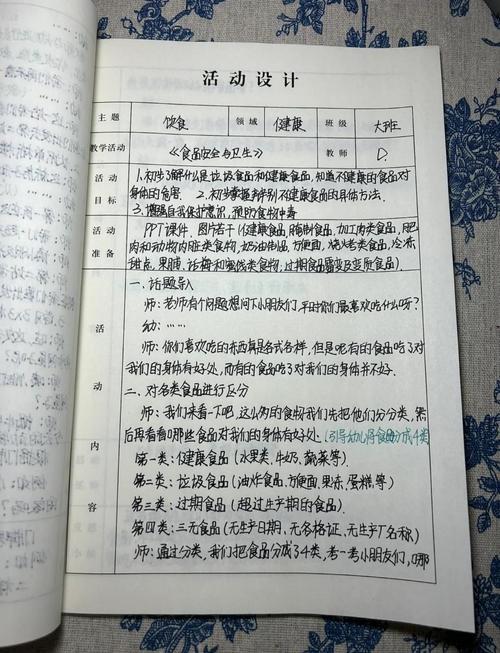 活动设计
主题 饮食 领域 健康 班级 大班
教学活动 《食品安全与卫生》 教师 D.
活动目标
1.初步了解什么是垃圾食品和健康食品,知道不健康的食品对
身体的危害. 2.初步掌握辨别不健康食品的具体方法.
3.增强自我保护意识,预防食物中毒
活动准备
PPT课件.图片若干(健康食品,腌制食品,加工肉类食品,肥
肉和动物内脏类食物,奶油制品,方便面,烧烤类食品,冷冻
甜点,果脯,话梅和蜜饯类食物,过期食品霉变及变质食品)
活动内容
一、话题导入
师:老师有个问题想问下小朋友们,平时你们最喜欢吃什么呀?
幼:……
师:你们喜欢吃的东西真是各式各样,但是呢有的食品吃了对
我们的身体有好处,而有的食品吃了对我们的身体并不好.
二、对各类食品进行区分
师:我们来看一下吧,这么多的食物我们先把他们分分类,然
后再看看哪些食品对我们的身体有好处.(引导幼儿将食品分成4类)
第一类:健康食品(水果类、牛奶、蔬菜等)
第二类:垃圾食品(油炸食品、方便面、果冻、蛋糕等)
第三类:过期食品(超过生产期的食品)
第四类:三无食品(无生产日期、无合格证、无生产厂名称)
师:通过分类,我们把食品分成了4类,考一考小朋友们,哪